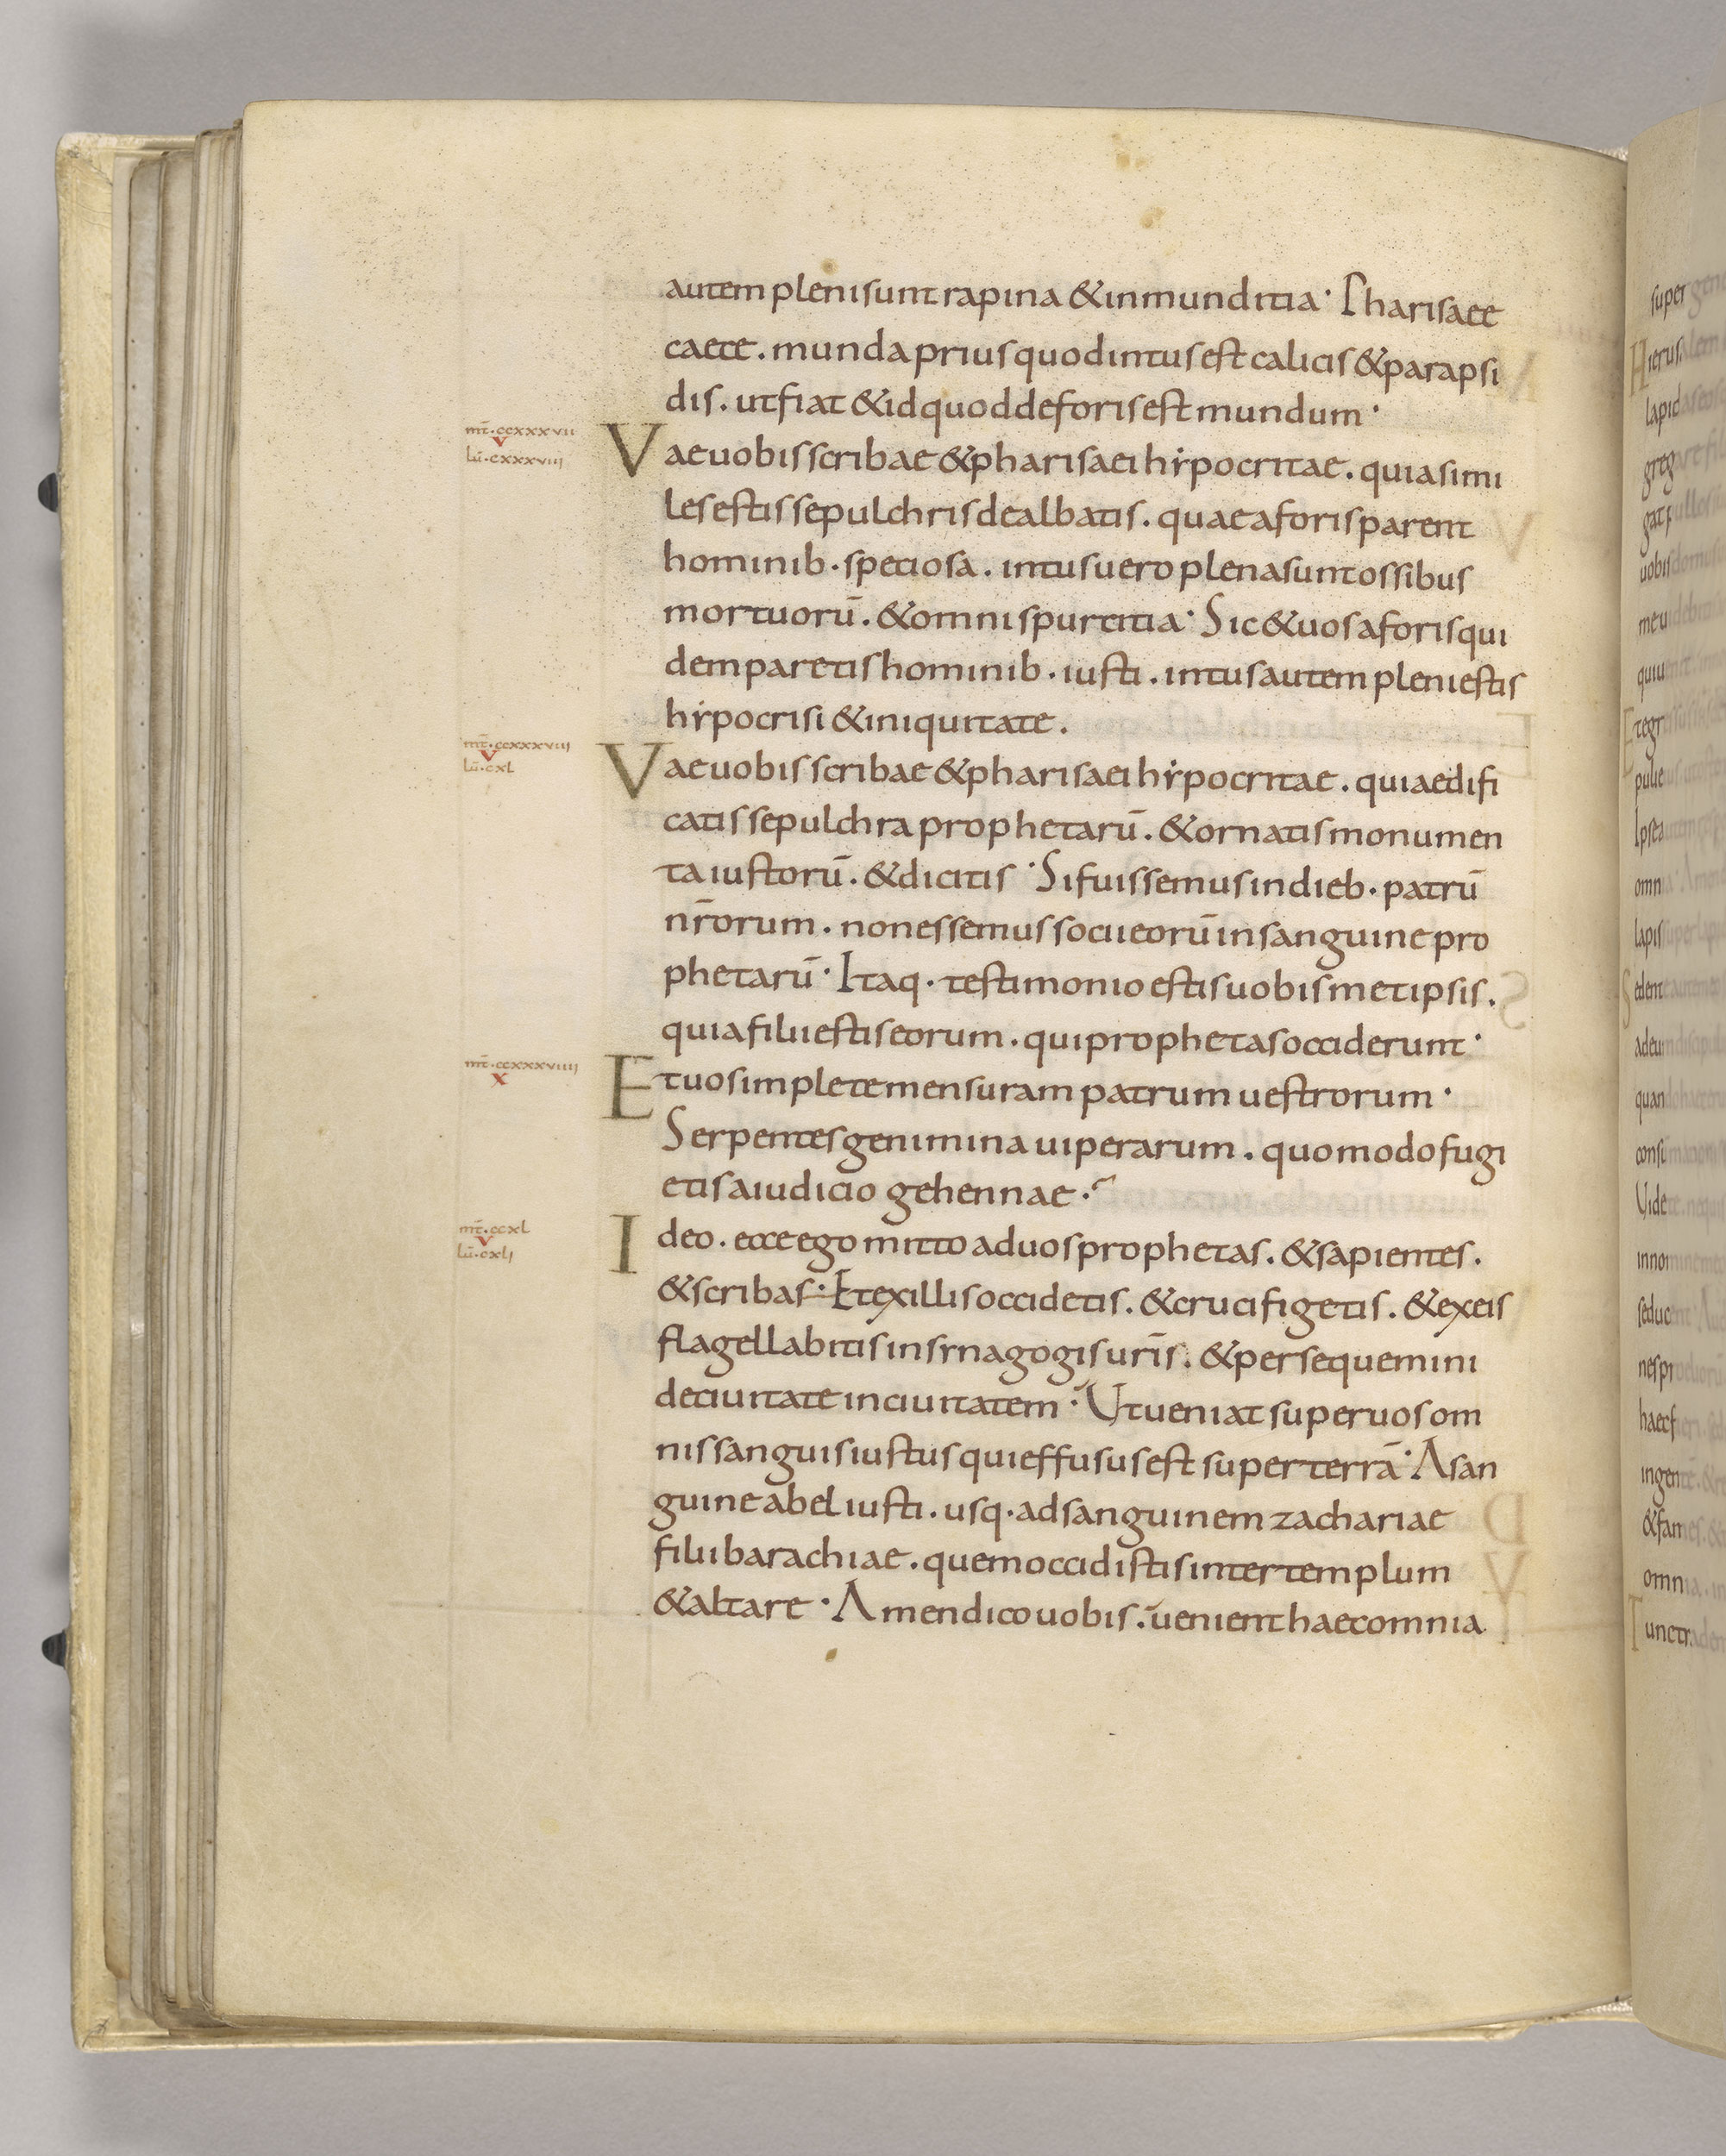 autem pleni sunt rapina & inmunditia· Pharisaee
caece . munda prius quod intus est calicis & parapsi
dis . ut fiat & id quod deforis est mundum ·
mt̄·ccxxxvii
v
lū·cxxxviii
Vae uobis scribae & pharisaei hẏpocritae . quia simi
les estis sepulchris dealbatis . quae aforis parent
hominib· speciosa . intus uero plena sunt ossibus
mortuorū . & omni spurcitia· Sic & uos aforis qui
dem paretis hominib· iusti . intus autem pleni estis
hẏpocrisi & iniquitate .
mt̄·ccxxxviii
v
lū·cxl
Vae uobis scribae & pharisaei hẏpocritae . quia edifi
catis sepulchra prophetarū . & ornatis monumen
ta iustorū . & dicitis · Si fuissemus in dieb· patrū
nr̄orum . non essemus socii eorū in sanguine pro
phetarū · Itaq· testimonio estis uobismetipsis .
quia filii estis eorum . qui prophetas occiderunt ·
mt̄·ccxxxviiii
x
Et uos implete mensuram patrum uestrorum ·
Serpentes genimina uiperarum . quomodo fugi
etis a iudicio gehennae .
mt̄·ccxl
v
lū·cxli
Ideo . ecce ego mitto ad uos prophetas . & sapientes .
& scribas · Et ex illis occidetis . & crucifigetis . & ex eis
flagellabitis in synagogis ur̄is . & persequemini
de ciuitate in ciuitatem · Ut ueniat super uos om
nis sanguis iustus qui effusus est super terrā · A san
guine abel iusti . usq· ad sanguinem zachariae
filii barachiae . quem occidistis inter templum
& altare · Amen dico uobis . uenient haec omnia
super
Hierus
lapid
greg
gat
uobis
meu
quiu
Et egr
pulie
Ipse
omn
lapis
Sedent
adeu
quan
consu
Uide
inno
seduc
nespr
haec
ingen
& fam
omn
Tunc tr